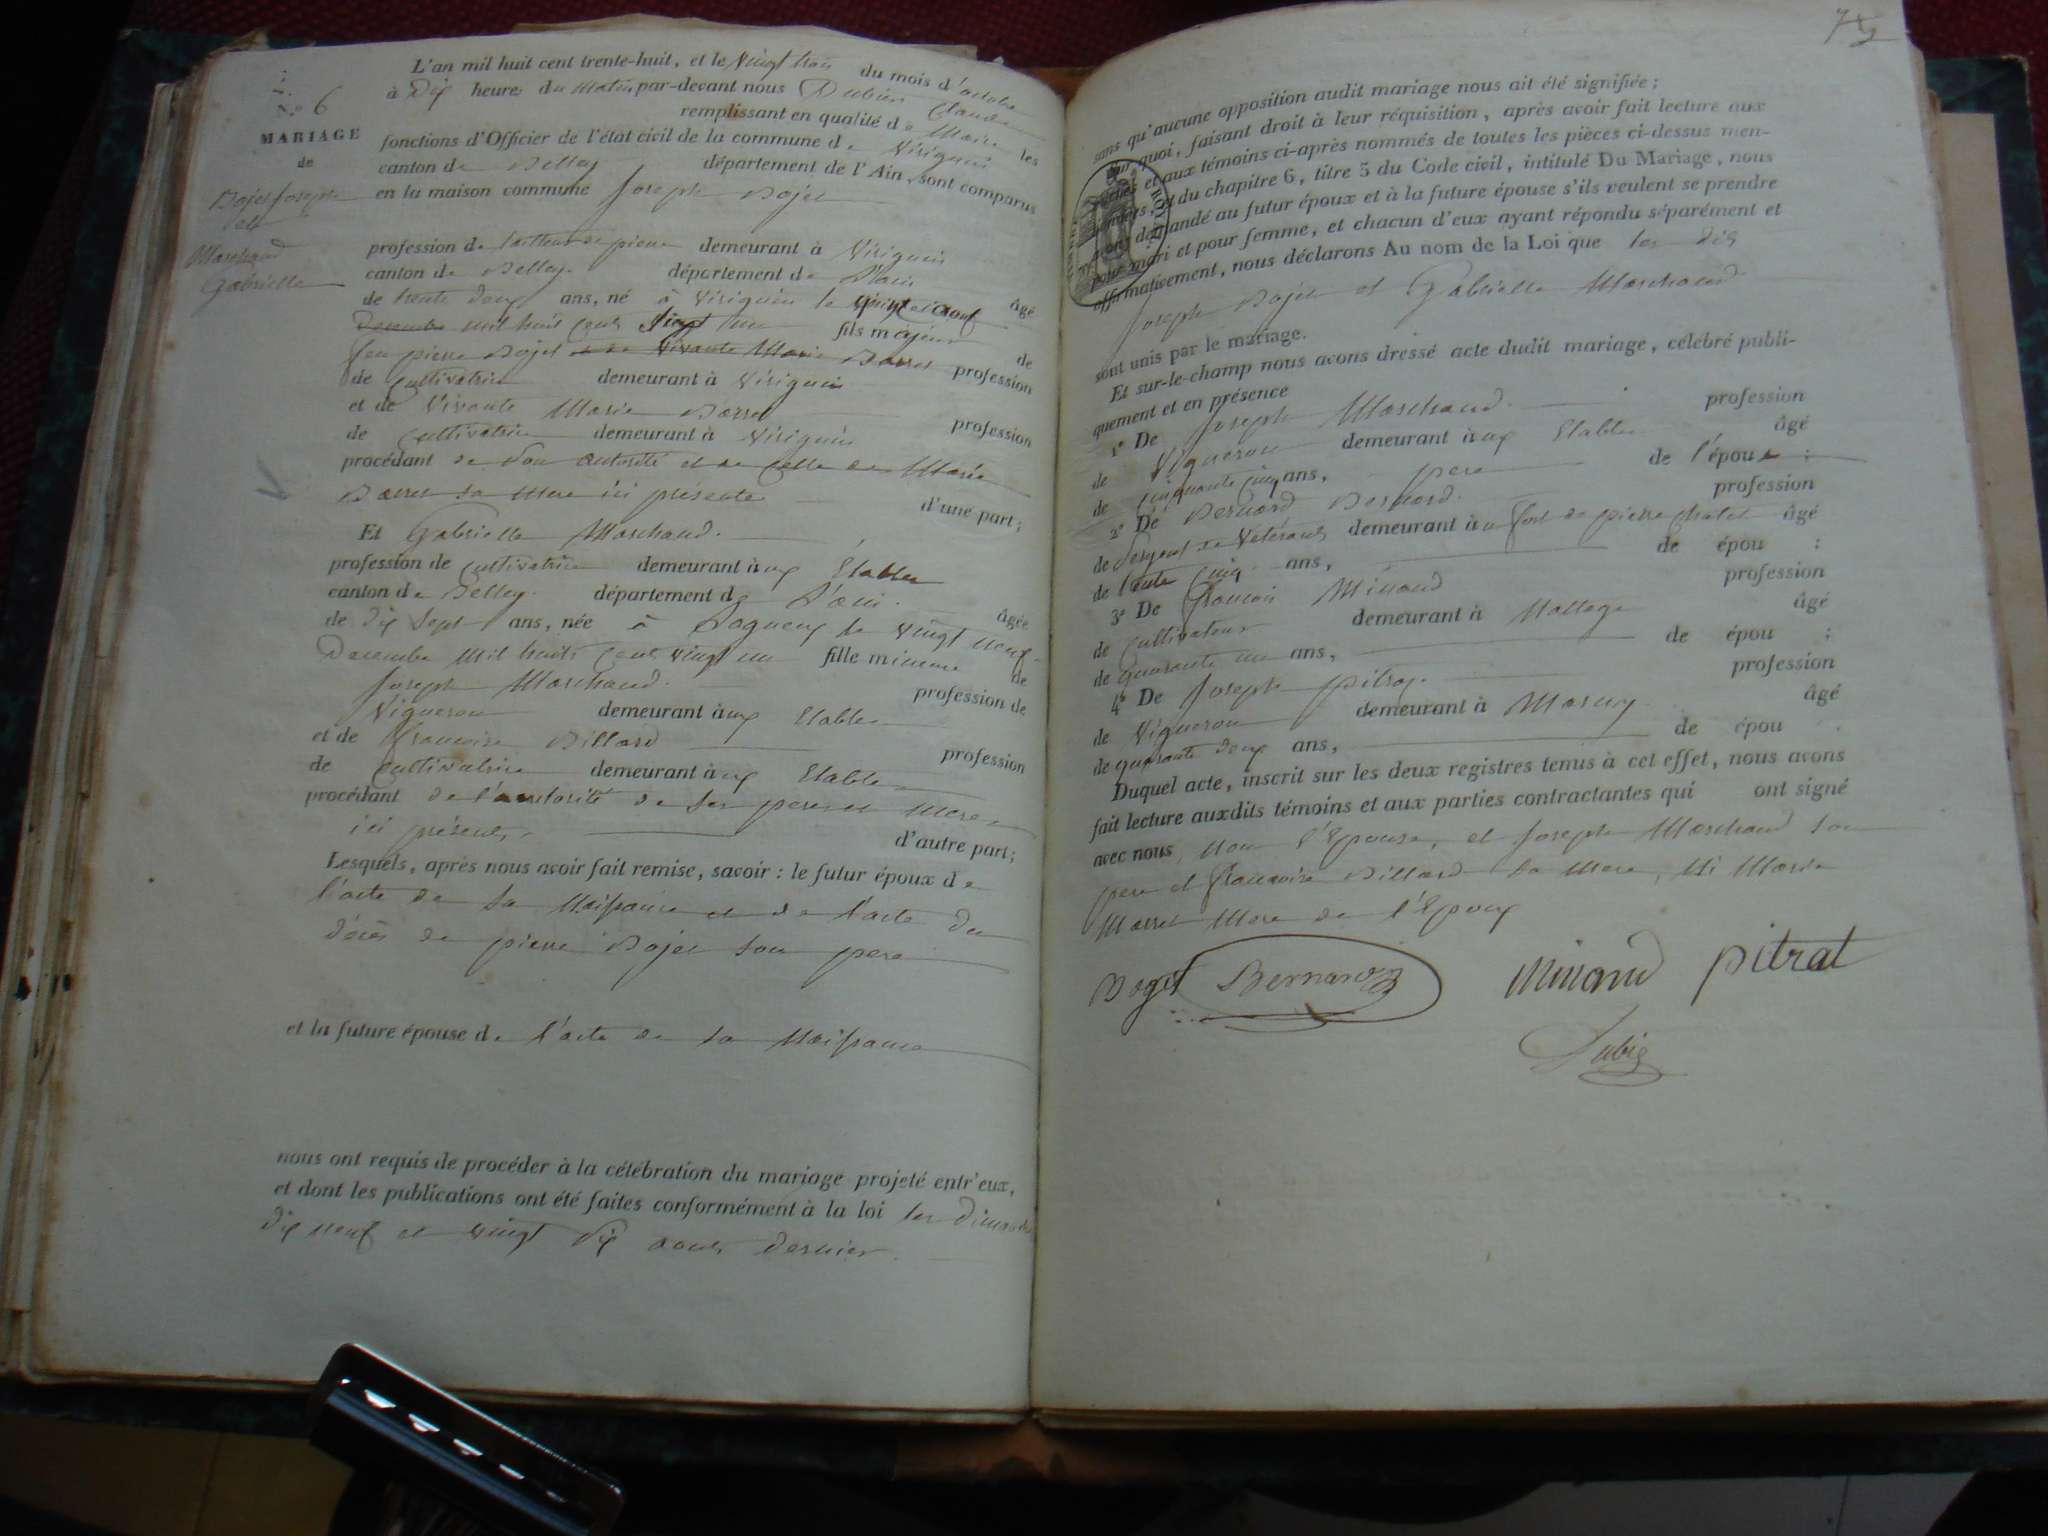 N.º 6
MARIAGE
de
Dojet Joseph
et
Marchand
Gabrielle
L'an mil huit cent trente-huit, et le vingt trois du mois d'octobre
à Dix heures du Matin par-devant nous Dubien Claude
remplissant en qualité de Maire les
fonctions d'Officier de l'état civil de la commune de Virignin
canton de Belley département de l'Ain, sont comparus
en la maison commune Joseph Dojet
profession de tailleur de pierre demeurant à Virignin
canton de Belley département de l'ain âgé
de trente deux ans, né à Virignin le
Decembre mil huit cent fils majeur de
feu pierre Dojet et de Vivante Marie Barret profession
de cultivatrice demeurant à Virignin
et de Vivante Marie Barret profession
de cultivatrice demeurant à Virignin
procédant de son autorité et de celle de Marie
Barret sa mere ici présente d'une part;
Et Gabrielle Marchand.
profession de cultivatrice demeurant aux Etables
canton de Belley. département de l'ain. âgée
de dix sept ans, née à le vingt neuf
Decembre mil huit cent vingt un fille mineure de
Joseph Marchand. profession de
Vigneron demeurant aux Etables
et de francoise Billard profession
de cultivatrice demeurant aux Etables
procédant de l'autorité de ses pere et mere
ici présents, d'autre part;
Lesquels, après nous avoir fait remise, savoir : le futur époux de
l'acte de sa Naissance et de l'acte de
décès de pierre Dojet son pere
et la future épouse de l'acte de sa Naissance
nous ont requis de procéder à la célébration du mariage projeté entr'eux,
et dont les publications ont été faites conformément à la loi les dimanches
dix neuf et vingt six aout dernier.
sans qu'aucune opposition audit mariage nous ait été signifiée;
Sur quoi, faisant droit à leur réquisition, après avoir fait lecture aux
parties et aux témoins ci-après nommés de toutes les pièces ci-dessus men-
tionnées, et du chapitre 6, titre 5 du Code civil, intitulé Du Mariage, nous
avons demandé au futur époux et à la future épouse s'ils veulent se prendre
pour mari et pour femme, et chacun d'eux ayant répondu séparément et
affirmativement, nous déclarons Au nom de la Loi que les dits
Joseph Dojet et Gabrielle Marchand
sont unis par le mariage.
Et sur-le-champ nous avons dressé acte dudit mariage, célébré publi-
quement et en présence
1º De Joseph Marchand. profession
de Vigneron demeurant aux Etables âgé
de cinquante cinq ans, pere de l'épouse :
2º De Bernard Bernard. profession
de Sergent de Vétérans demeurant au fort de pierre chatel âgé
de trente cinq ans, de épou :
3º De francois Minand profession
de cultivateur demeurant à Nattage âgé
de quarante un ans, de épou :
4º De Joseph pitrat. profession
de Vigneron demeurant à Marcey âgé
de quarante deux ans, de épou .
Duquel acte, inscrit sur les deux registres tenus à cet effet, nous avons
fait lecture auxdits témoins et aux parties contractantes qui ont signé
avec nous, non l'Epouse, et Joseph Marchand son
pere et francoise Billard sa mere, ni Marie
Marret mere de l'Epoux
Dojet Bernard Minand pitrat
Dubie